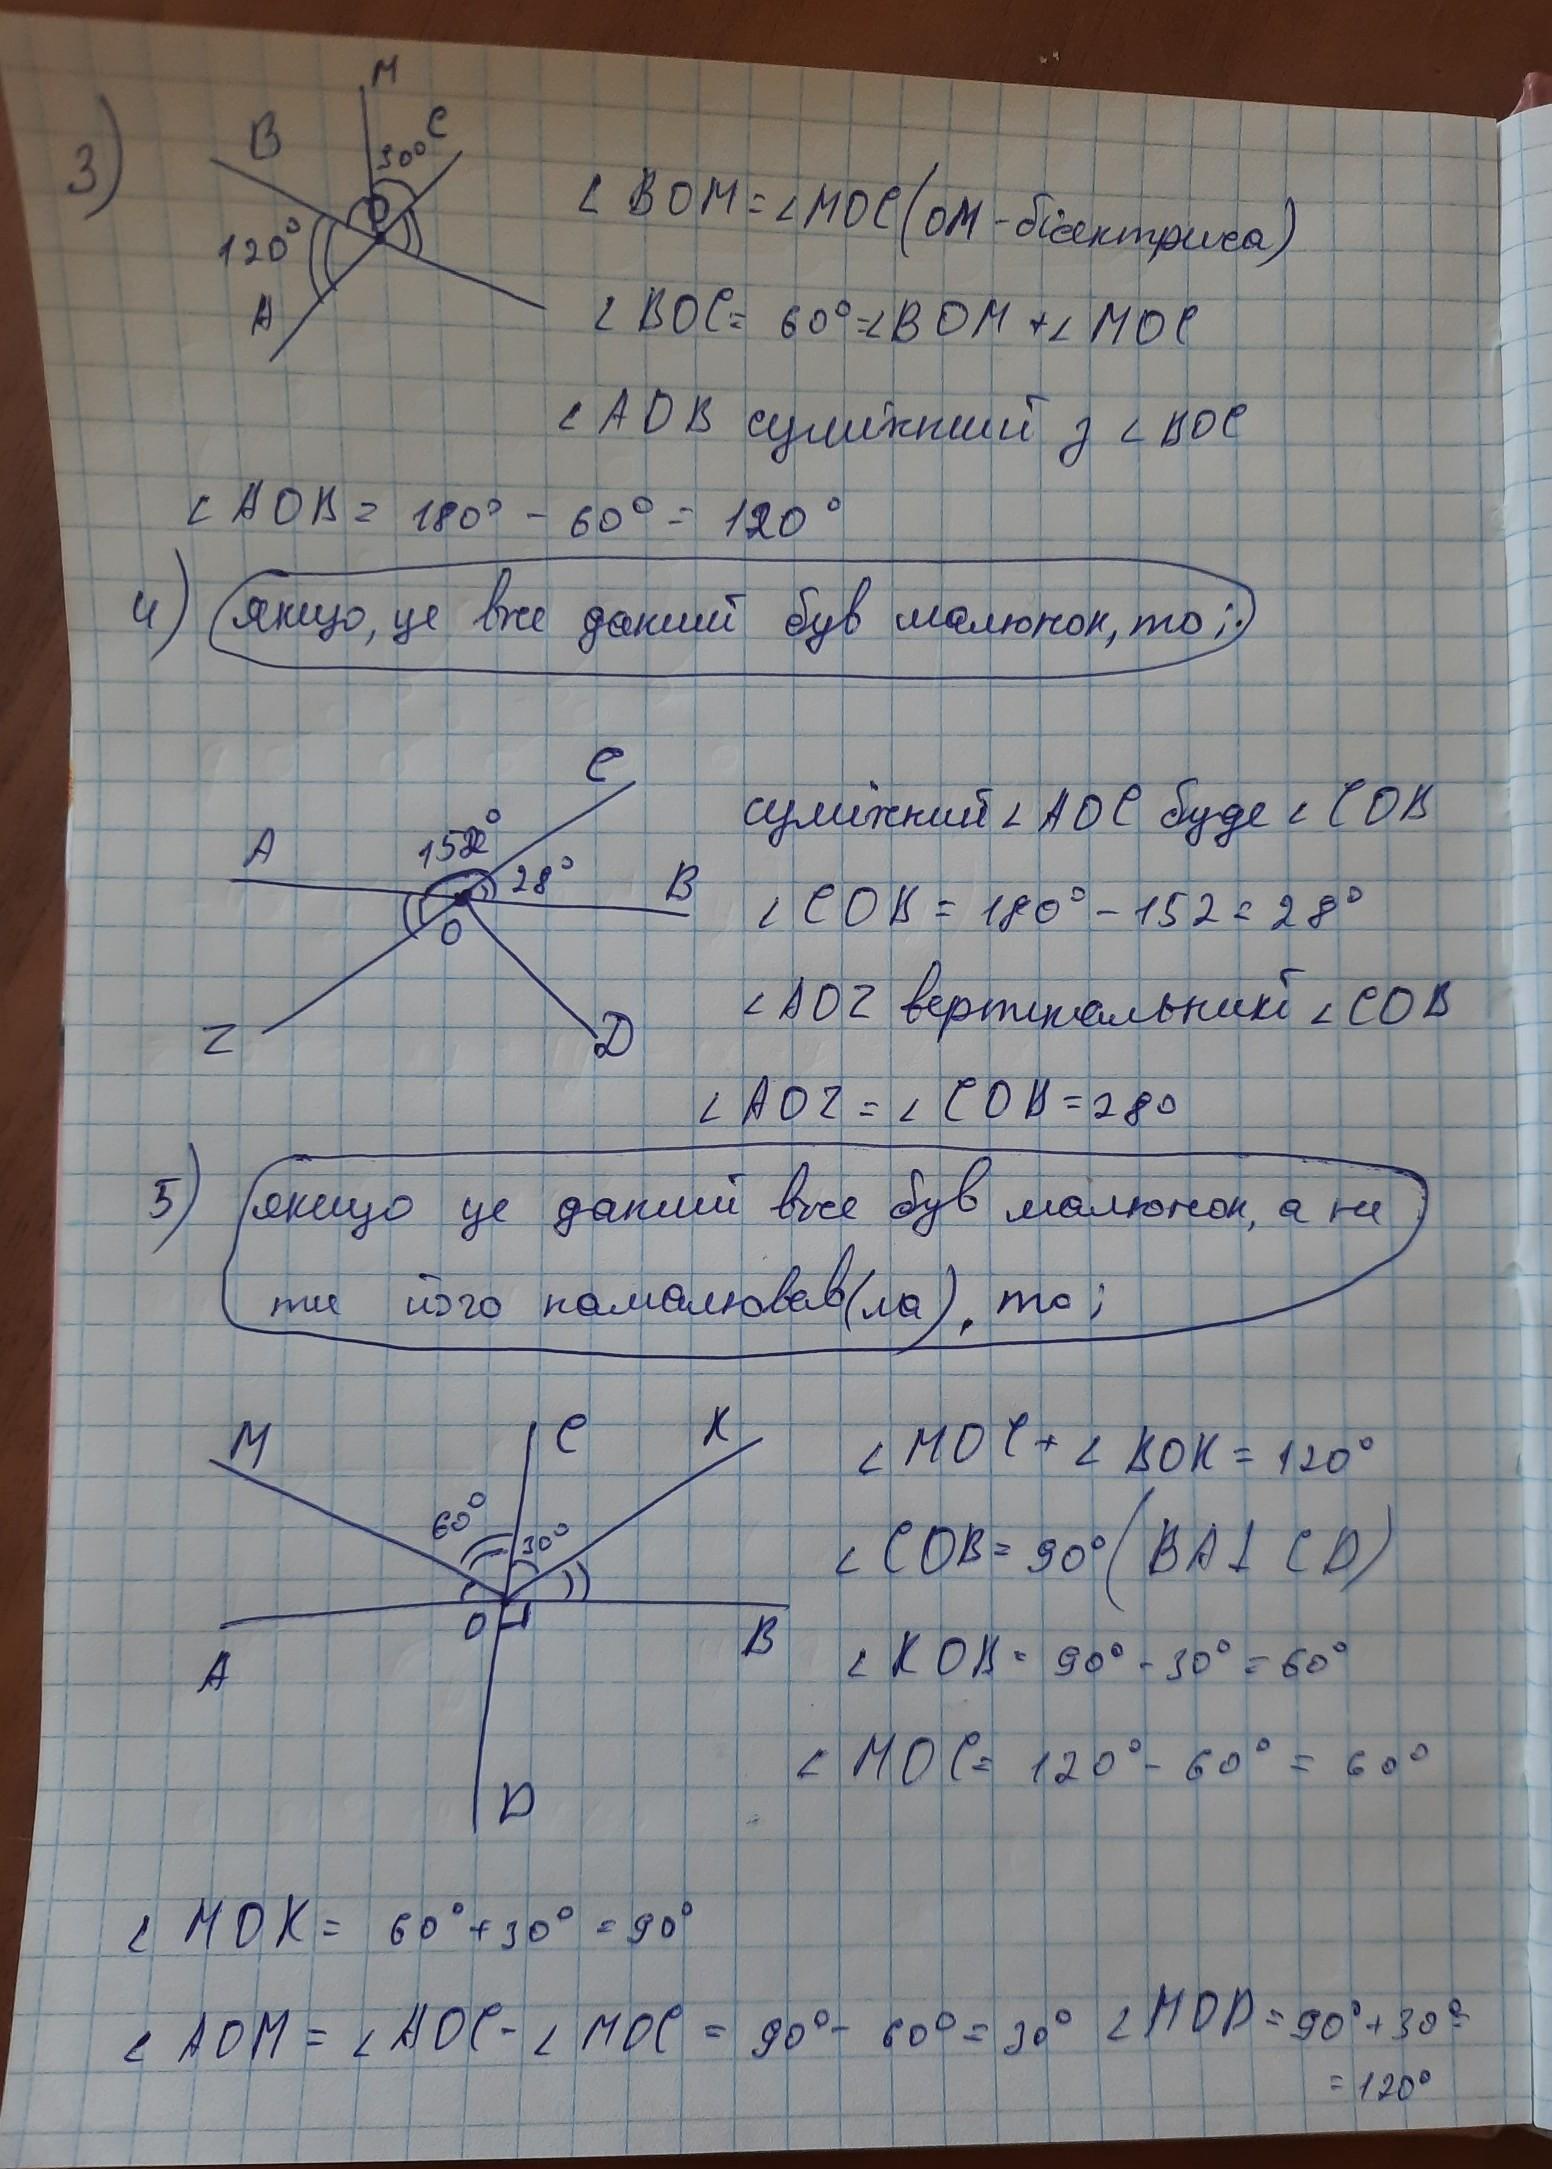 3)
M
B
C
30°
O
120°
A
∠ BOM = ∠MOC (OM - бісектриса)
∠ BOC = 60° = ∠BOM + ∠ MOC
∠ AOB суміжний з ∠ BOC
∠ AOB = 180° - 60° = 120°
4) якщо, це вже даний був малюнок, то;
C
A
152°
28°
B
O
Z
D
суміжний ∠ AOC буде ∠ COB
∠ COB = 180° - 152 = 28°
∠ AOZ вертикальний ∠ COB
∠ AOZ = ∠ COB = 28°
5) якщо це даний вже був малюнок, а не
ти його намалював(ла), то;
M
C
K
60°
30°
O
A
B
D
∠ MOC + ∠ BOK = 120°
∠ COB = 90° (BA ⊥ CD)
∠ KOB = 90° - 30° = 60°
∠ MOC = 120° - 60° = 60°
∠ MOK = 60° + 30° = 90°
∠ AOM = ∠ AOC - ∠ MOC = 90° - 60° = 30° ∠ MOD = 90° + 30° =
= 120°